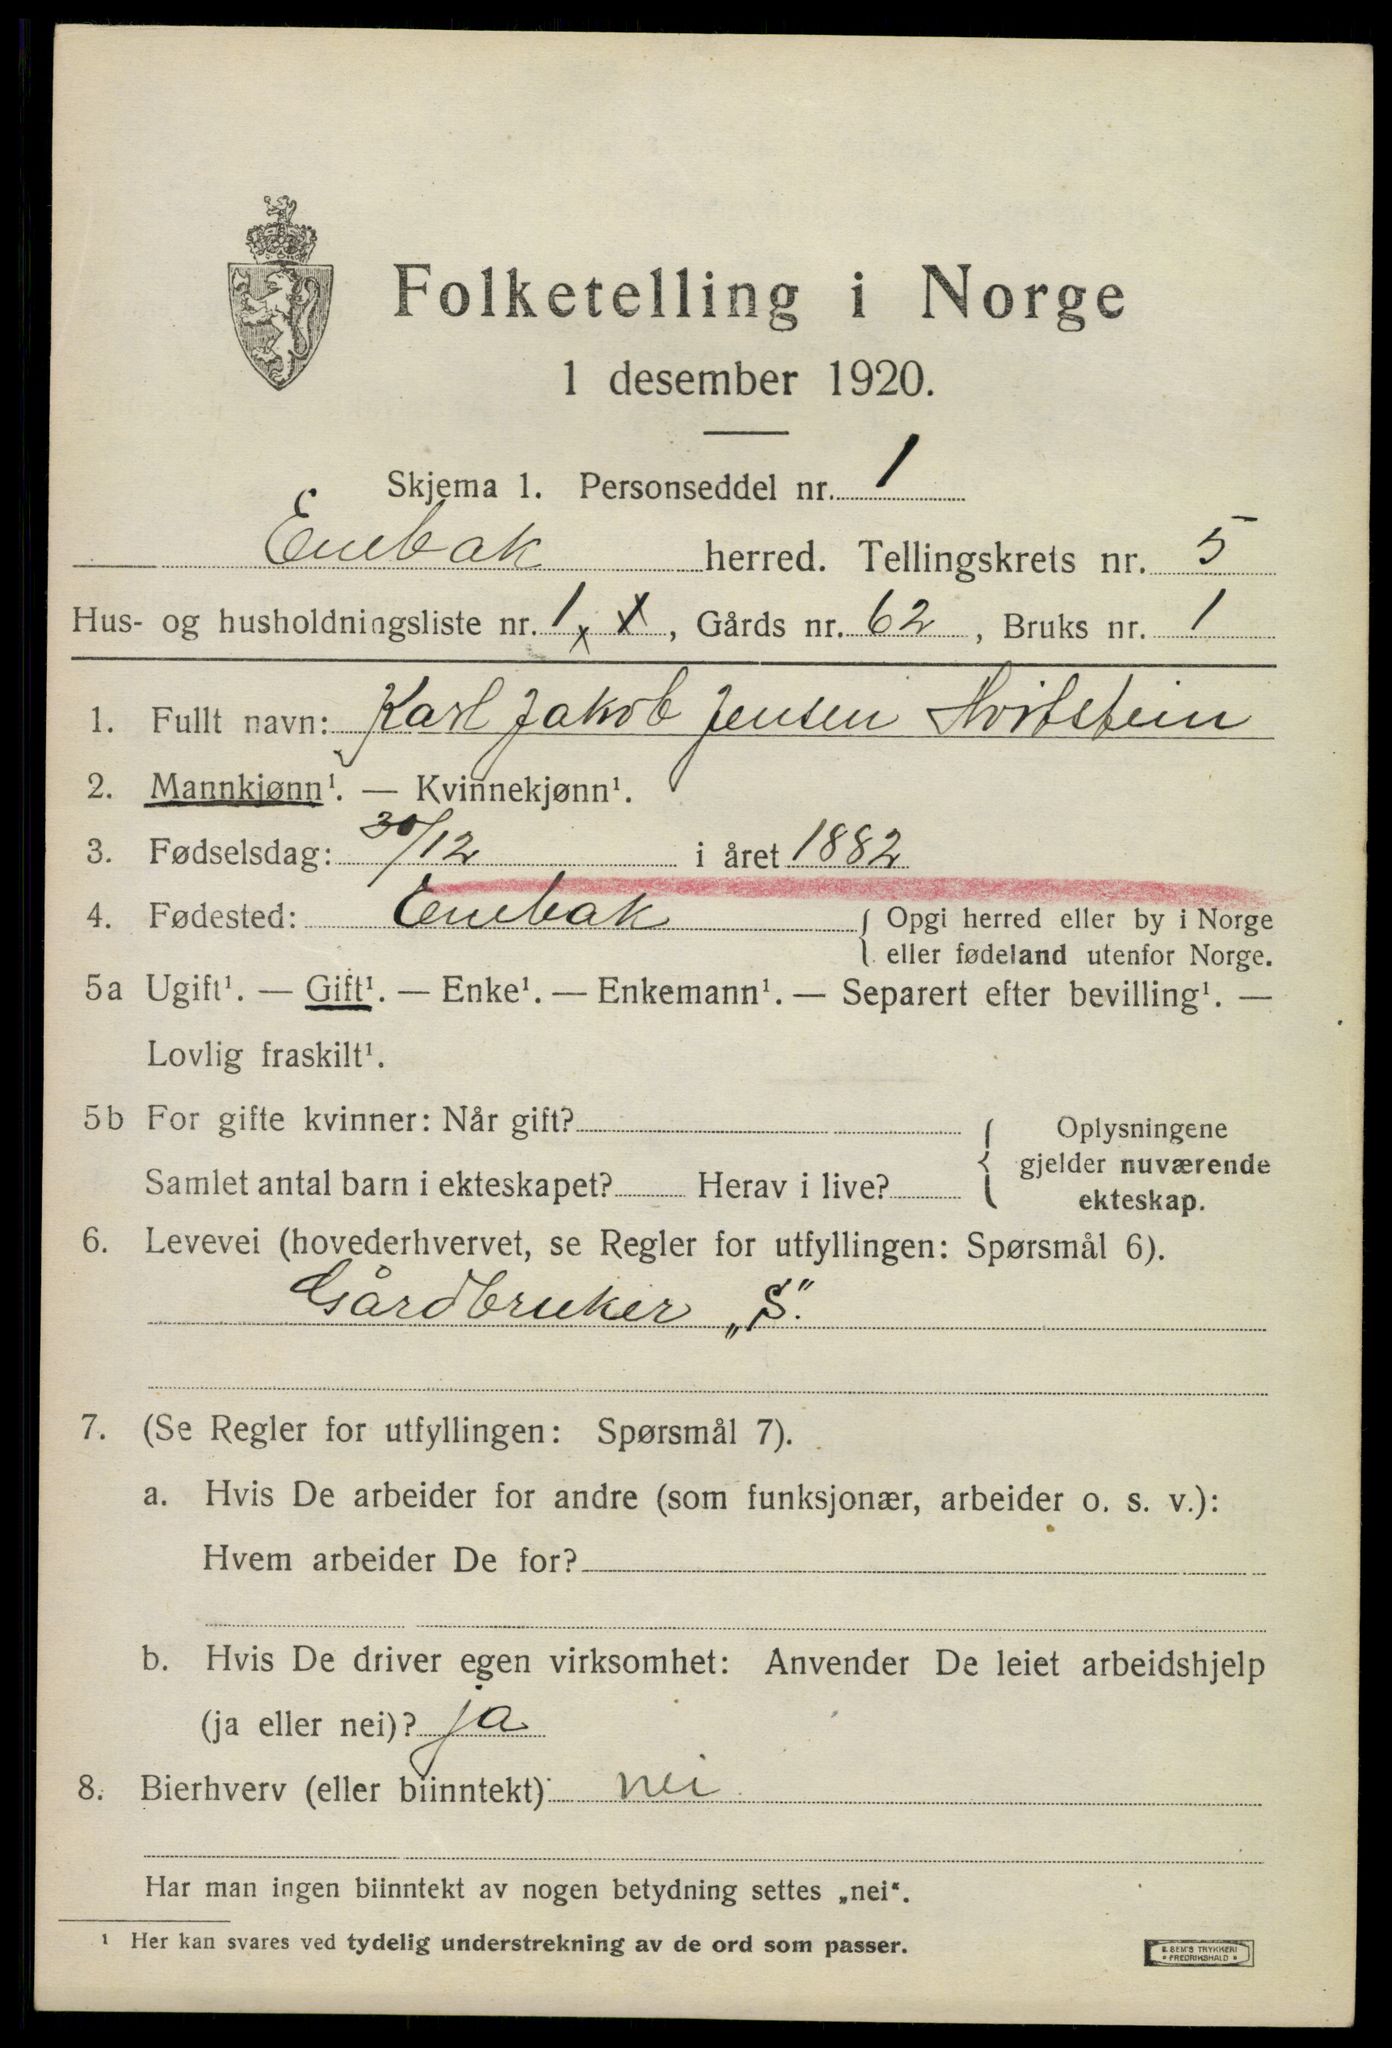 Folketelling i Norge
1 desember 1920.
Skjema 1. Personseddel nr. 1
Enebak herred. Tellingskrets nr. 5
Hus- og husholdningsliste nr. 1 x x, Gårds nr. 62, Bruks nr. 1
1. Fullt navn: Karl Jakob Jensen Hvitstein
2. Mannkjønn¹. — Kvinnekjønn¹.
3. Fødselsdag: 30/12 i året 1882
4. Fødested: Enebak { Opgi herred eller by i Norge
eller fødeland utenfor Norge.
5a Ugift¹. — Gift¹. — Enke¹. — Enkemann¹. — Separert efter bevilling¹. —
Lovlig fraskilt¹.
5b For gifte kvinner: Når gift?
Samlet antal barn i ekteskapet? Herav i live?
{ Oplysningene
gjelder nuværende
ekteskap.
6. Levevei (hovederhvervet, se Regler for utfyllingen: Spørsmål 6).
Gårdbruker „S".
7. (Se Regler for utfyllingen: Spørsmål 7).
a. Hvis De arbeider for andre (som funksjonær, arbeider o. s. v.):
Hvem arbeider De for?
b. Hvis De driver egen virksomhet: Anvender De leiet arbeidshjelp
(ja eller nei)? ja
8. Bierhverv (eller biinntekt): nei
Har man ingen biinntekt av nogen betydning settes „nei“.
¹ Her kan svares ved tydelig understrekning av de ord som passer.
E. SEM'S TRYKKERI
FREDRIKSHALD